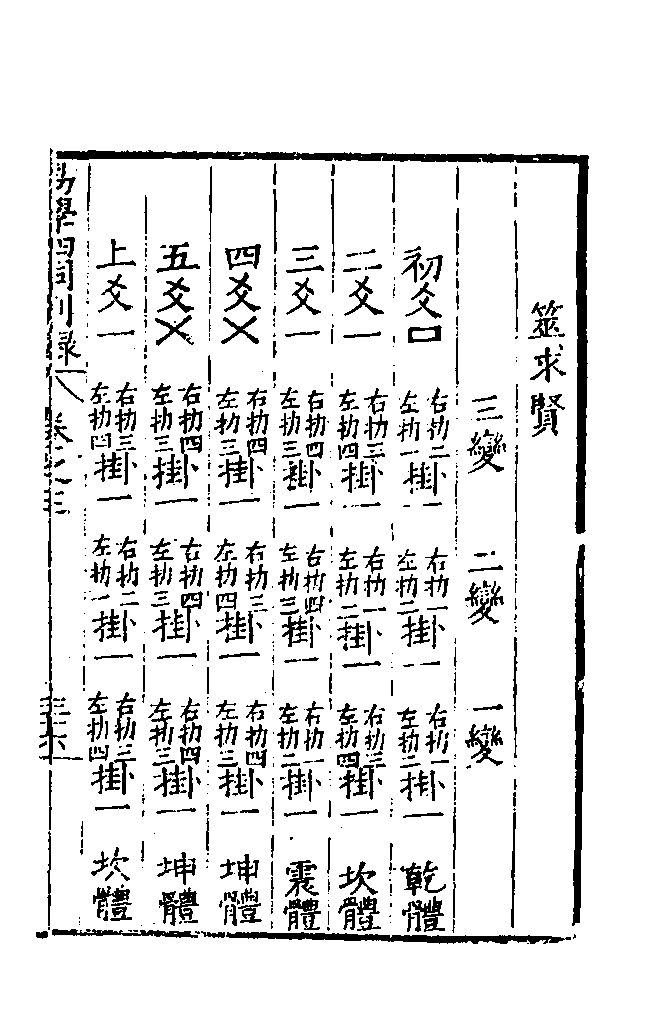 筮求賢
三變 二變 一變
初爻□ 右扐二左扐一掛一 右扐一左扐二掛一 右扐一左扐二掛一 乾體
二爻一 右扐三左扐四掛一 右扐一左扐二掛一 右扐三左扐四掛一 坎體
三爻一 右扐四左扐三掛一 右扐四左扐三掛一 右扐一左扐二掛一 震體
四爻× 右扐四左扐三掛一 右扐三左扐四掛一 右扐四左扐三掛一 坤體
五爻× 右扐四左扐三掛一 右扐四左扐三掛一 右扐四左扐三掛一 坤體
上爻一 右扐三左扐四掛一 右扐二左扐一掛一 右扐三左扐四掛一 坎體
易學四同別錄 卷之三